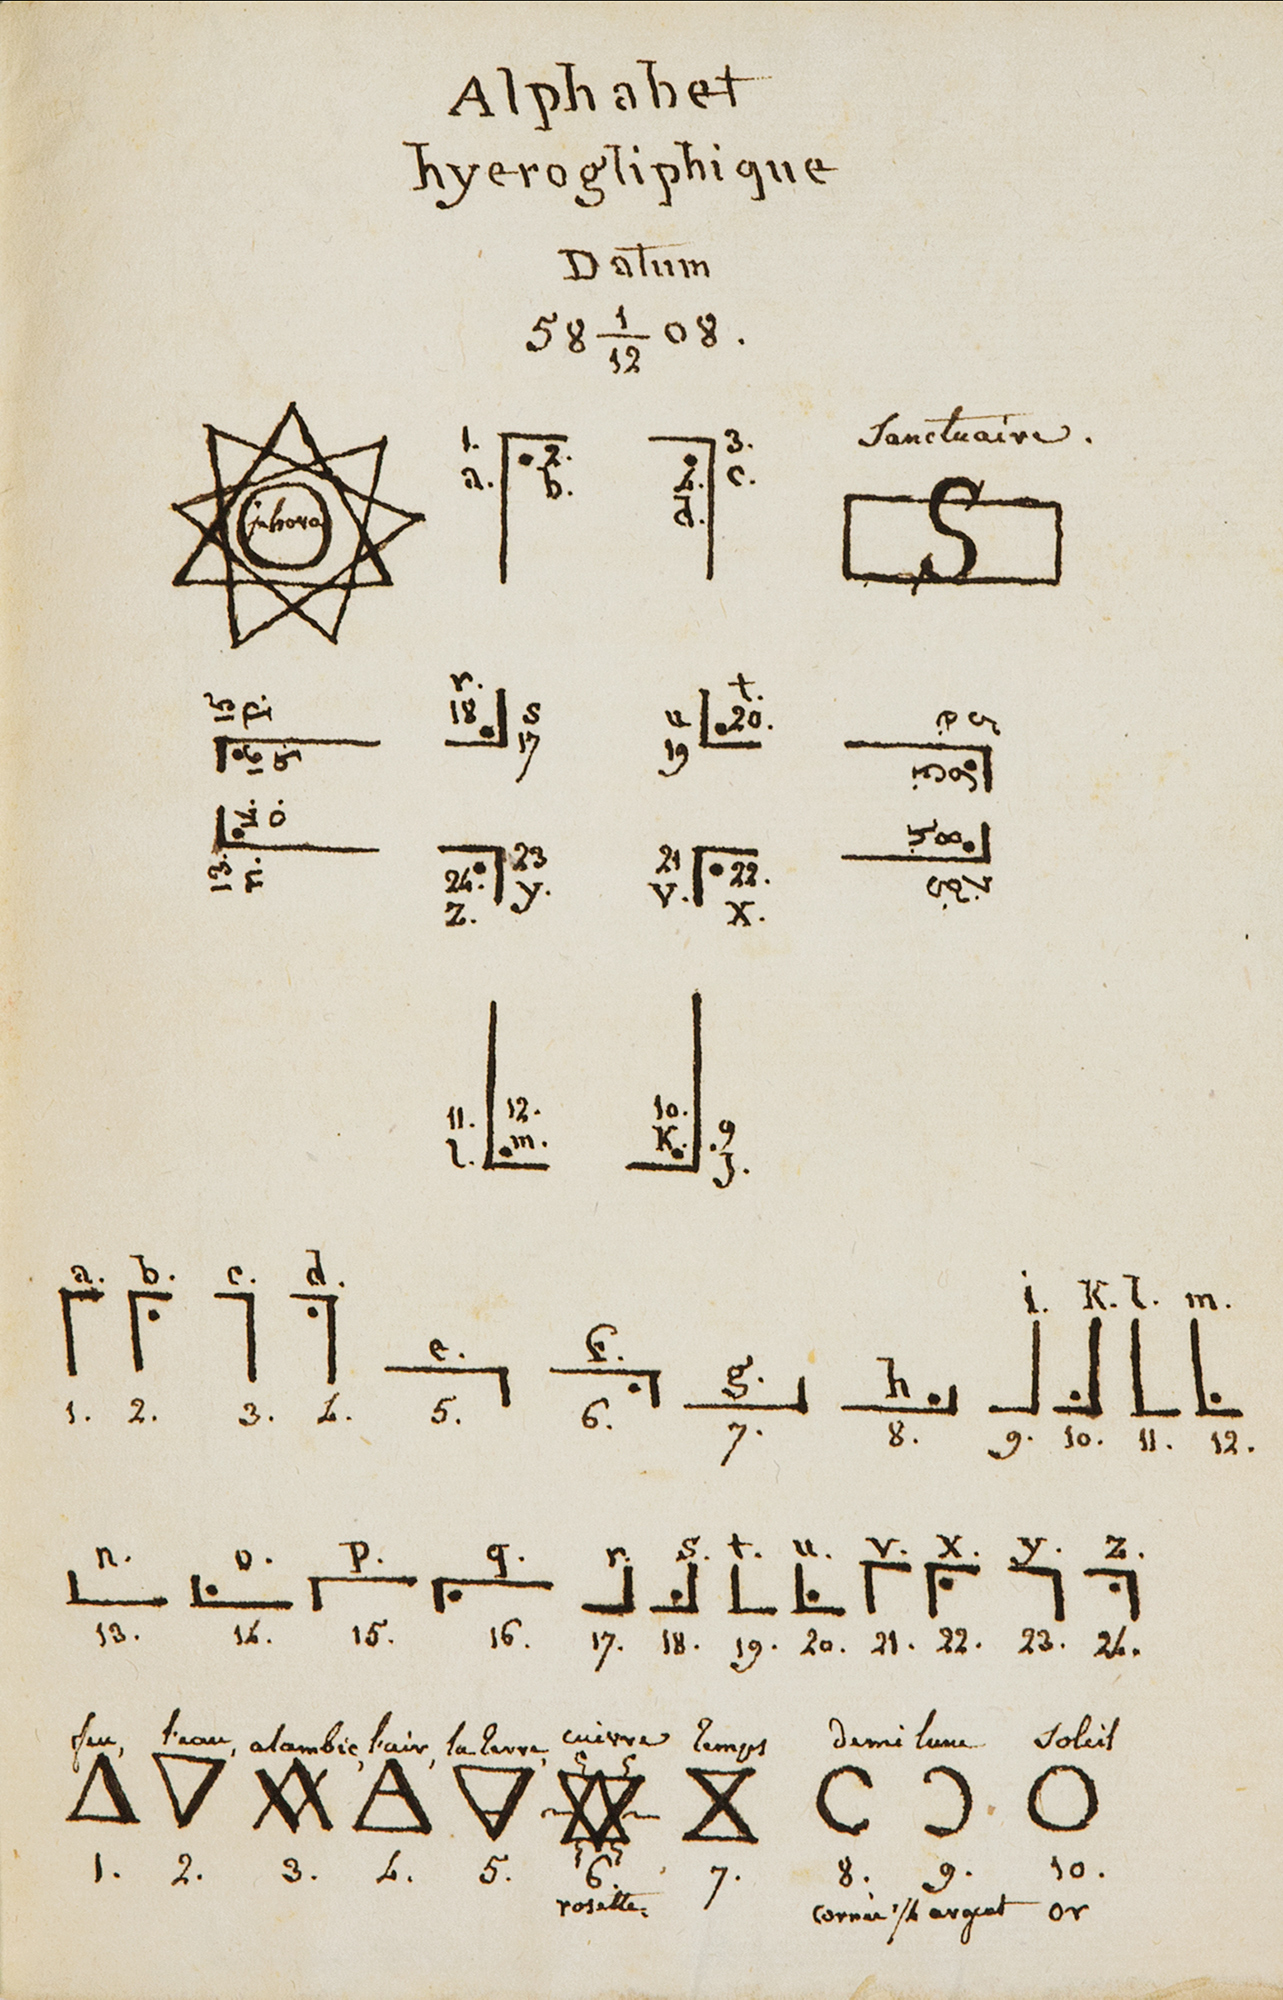 Alphabet
hyerogliphique
Datum
58 1/12 08.
jehova
1. a. 2. b.
4. d. 3. c.
Sanctuaire.
S
15 p.
16 q.
r. 18 s 17
u 19 t. 20.
e 5.
f 6.
14. o.
13. n.
24. z. 23 y.
21 v. 22. x.
h 8
g. 7.
11. l. 12. m.
10. K. 9 j.
a. b. c. d. e. f. g. h i. K. l. m.
1. 2. 3. 4. 5. 6. 7. 8. 9. 10. 11. 12.
n. o. p. q. r. s. t. u. v. x. y. z.
13. 14. 15. 16. 17. 18. 19. 20. 21. 22. 23. 24.
feu, l'eau, alambic, l'air, la terre, cuivre temps demi lune Soleil
1. 2. 3. 4. 5. 6. 7. 8. 9. 10.
rosette. argent or